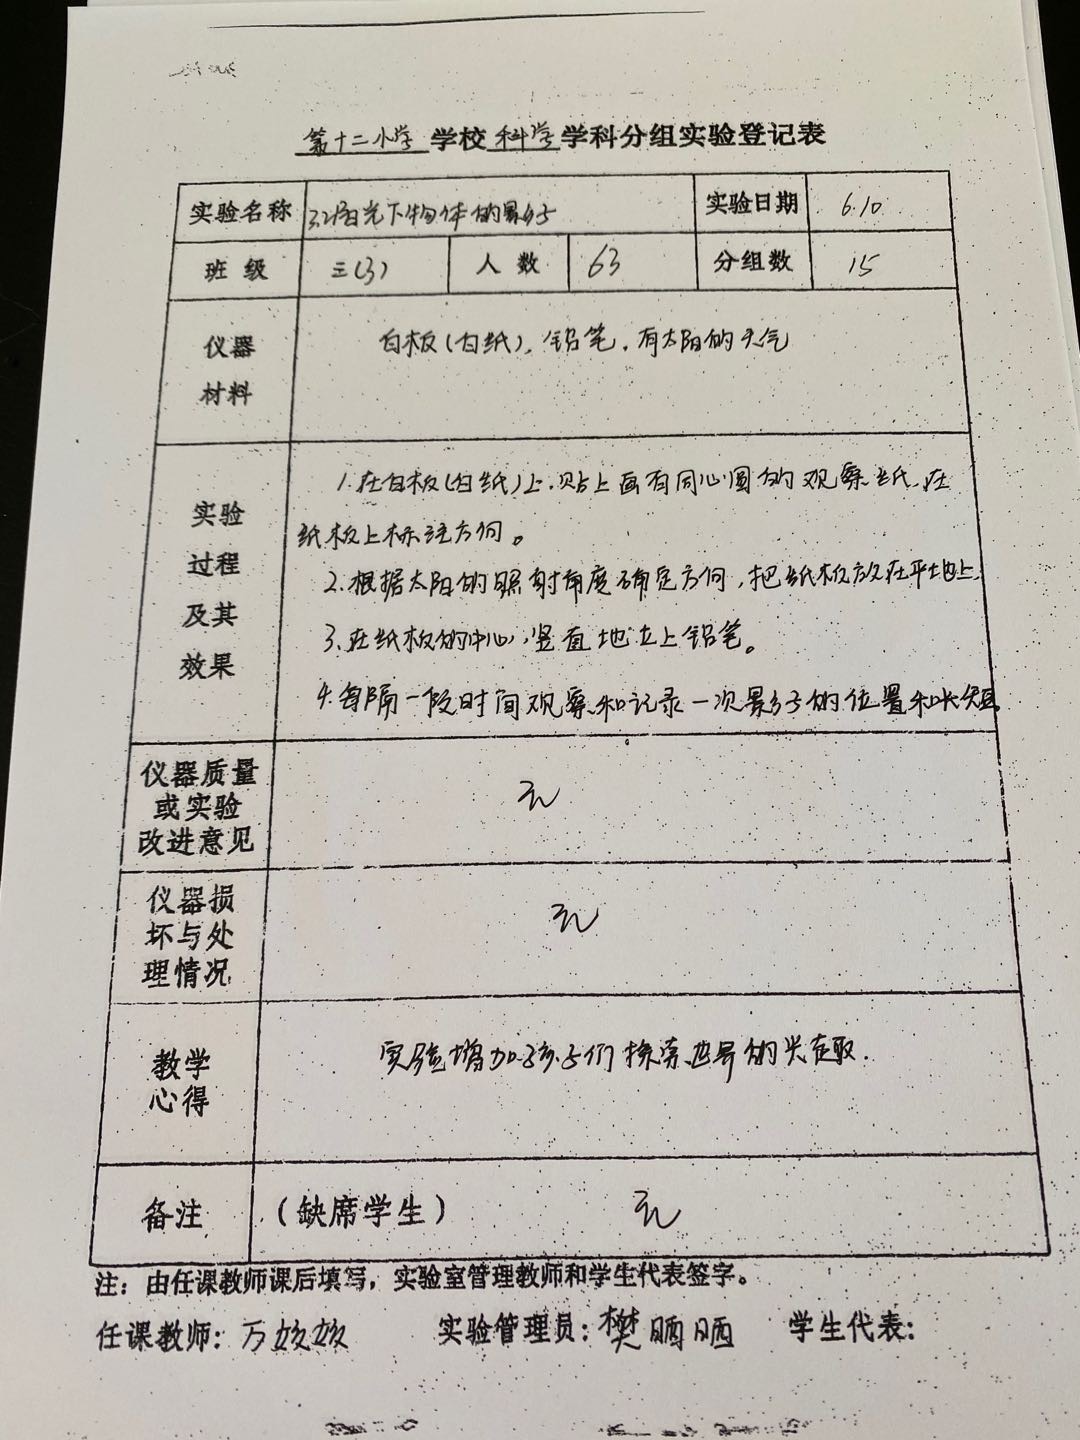 第十二小学 学校 科学 学科分组实验登记表
实验名称 3.2阳光下物体的影子 实验日期 6.10
班 级 三(3) 人 数 63 分组数 15
仪器 白板(白纙), 铅笔, 有太阳的天气
材料
实验 1.在白板(白纸)上,贴上画有同心圆的观察纸,在
纸板上标注方向。
过程 2.根据太阳的照射角度确定方向,把纸板放在平地上.
及其 3.在纸板的中心,竖直地立上铅笔。
效果 4.每隔一段时间观察和记录一次影子的位置和长短.
仪器质量
或实验 无
改进意见
仪器损
坏与处 无
理情况
教学 实验增加孩子们探索世界的兴趣.
心得
备注 (缺席学生) 无
注：由任课教师课后填写，实验室管理教师和学生代表签字。
任课教师: 万姣姣 实验管理员: 樊晒晒 学生代表: